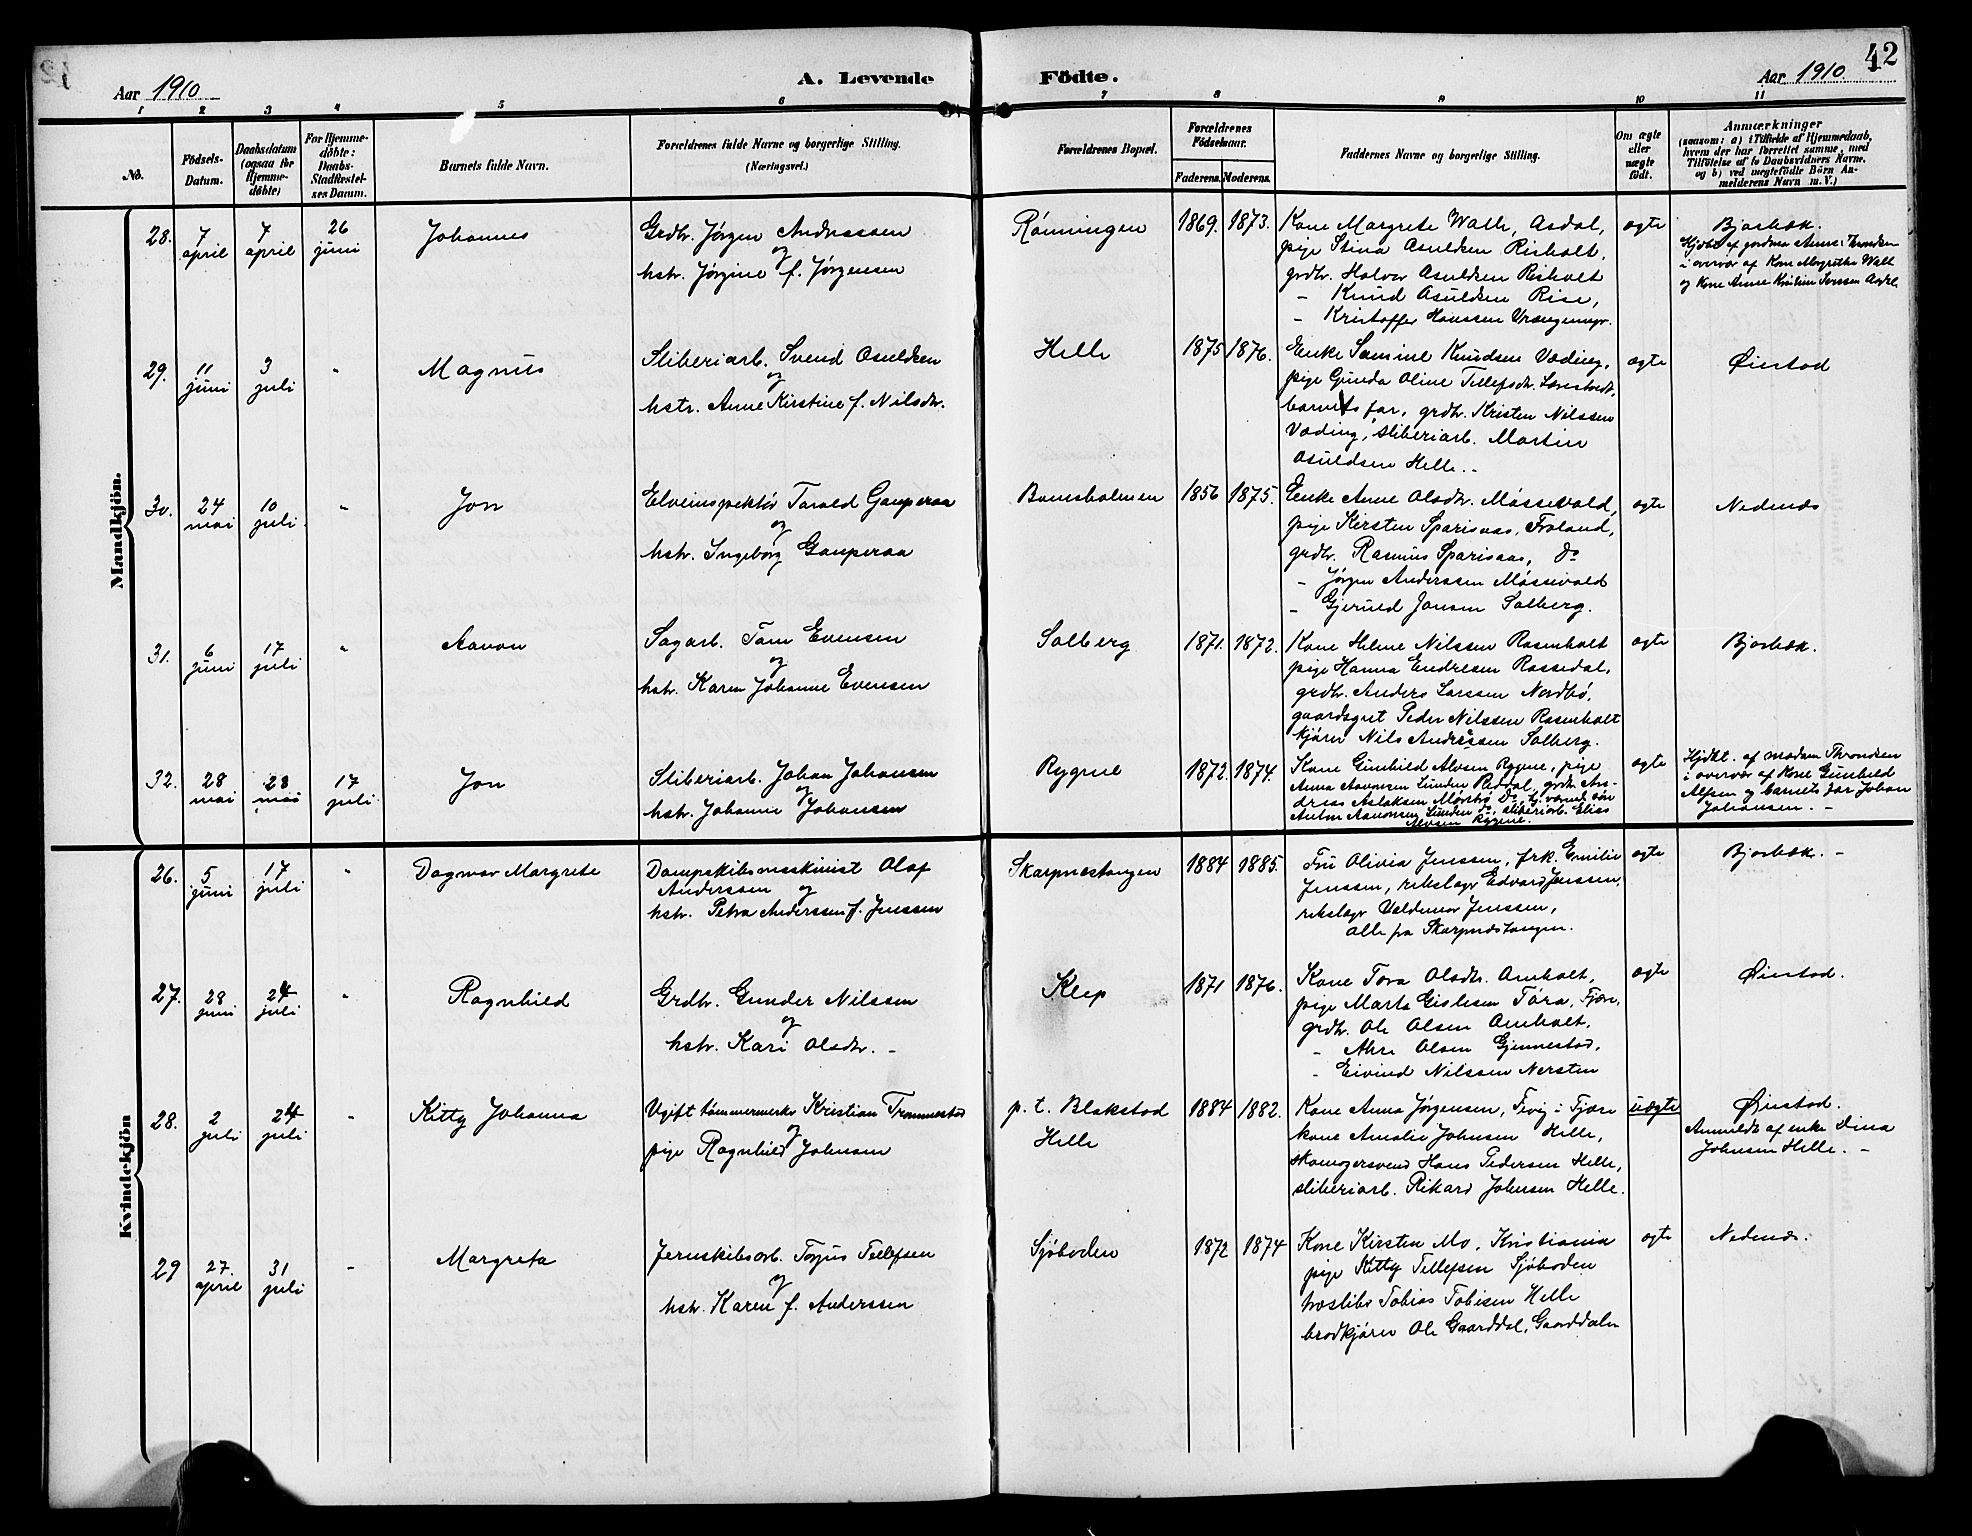 42
Aar 1910
A. Levende Födte.
Aar 1910
1 2 3 4 5 6 7 8 9 10 11
No.
Födsels-
Datum.
Daabsdatum
(ogsaa for
Hjemme-
döbte)
For Hjemme-
döbte:
Daabs-
Stadfæstel-
ses Datum.
Barnets fulde Navn.
Forældrenes fulde Navne og borgerlige Stilling.
(Næringsvei.)
Forældrenes Bopæl.
Forældrenes
Födselsaar.
Faderens. Moderens.
Faddernes Navne og borgerlige Stilling.
Om ægte
eller
uægte
födt.
Anmærkninger
(saasom: a) i Tilfælde af Hjemmedaab,
hvem der har forrettet samme, med
Tilföielse af to Daabsvidners Navne,
og b) ved uægtefödte Börn An-
melderens Navn m. V.)
Mandkjön.
28. 7 april 7 april 26 juni
Johannes
Grdbr. Jørgen Andreassen
og
hstr. Jørgine f. Jørgensen
Rønningen 1869. 1873.
Kone Margrete Walle, Asdal,
pige Stina Osuldsen Risholt,
grdbr. Halvor Osuldsen Risholt
- Knud Osuldsen Rise,
- Kristoffer Hanssen
ægte
Bjorbæk.
Hjdbt af jordmor Anne Throndsen
i overvær af Kone Margrethe Walle
og Kone Anne Kristine Jenssen Asdal
29. 11 juni 3 juli "
Magnus
Sliberiarb. Svend Osuldsen
og
hstr. Anne Kirstine f. Nilsdtr.
Helle 1875 1876.
Enke Samine Knudsen Væding,
pige Gunda Oline Tellefsdtr.
barnets far, grdbr. Kristen Nilssen
Væding, sliberiarb. Martin
Osuldsen Helle. -
ægte
Øiestad
30. 24 mai 10 juli "
Jon
Elveinspektør Tarald Gauperaa
og
hstr. Ingeborg Gauperaa
Bomsholmen 1856 1875.
Enke Anne Olsdtr. Messevold,
pige Kirsten Sparsaas, Froland,
grdbr. Rasmus Sparsaas, do
- Jørgen Anderssen Messevold
- Gjeruld Jansen Solberg.
ægte
Nedenæs
31. 6 juni 17 juli "
Aanon
Sagarb. Tom Evensen
og
hstr. Karen Johanne Evensen
Solberg 1871. 1872.
Kone Helene Nilssen Rosenholt
pige Hanna Endresen Rossedal,
grdbr. Anders Larssen Nordbø,
gaardsgut Peder Nilssen Rosenholt
kjører Nils Andreassen Solberg.
ægte
Bjorbæk.
32. 28 mai 28 mai 17 juli
Jon
Sliberiarb. Johan Johansen
og
hstr. Johanne Johansen
Rygene 1872. 1874.
Kone Gunhild Alvsen Rygene, pige
Anna Aanonsen Lunden Reddal, grdbr. An-
dreas Aslaksen Mørsbø do, hj. værende søn
Anton Aanonsen Lunden do, sliberiarb. Elias
Alvsen Rygene.
ægte
Hjdbt. af madam Throndsen
i overvær af Kone Gunhild
Alfsen og barnets far Johan
Johansen. -
Kvindekjön
26. 5 juni 17 juli "
Dagmar Margrete
Dampskibsmaskinist Olaf
Anderssen og
hstr. Petra Anderssen f. Jenssen
Skarpnestangen 1884 1885.
Fru Olivia Jenssen, frk. Emilie
Jenssen, rebslager Edvard Jenssen,
rebslagr Valdemar Jenssen,
alle fra Skarpnæstangen.
ægte
Bjorbæk. -
27. 28 juni 24 juli "
Ragnhild
Grdbr. Gunder Nilssen
og
hstr. Kari Olsdtr. -
Klep 1871 1876.
Kone Tora Olsdtr. Omholt,
pige Marta Gislesen Tøra, Fjære,
grdbr. Ole Olsen Omholt,
- Akre Olsen Gjennestad,
- Eivind Nilssen Nersten
ægte
Øiestad.
28. 2 juli 24 juli "
Kitty Johanna
Ugift tømmermerker Kristian Trommestad
og
pige Ragnhild Johnsen
p. t. Blakstad
Helle
1884 1882.
Kone Anna Jørgensen, Fevig i Fjære
kone Amalie Johnsen Helle,
skomagersvend Hans Pedersen Helle,
sliberiarb. Rikard Johnsen Helle.
uægte
Øiestad.
Anmeldt af enke Dina
Johnsen Helle. -
29 27. april 31 juli -
Margreta
Jernskibsarb. Torjus Tellefsen
og
hstr. Karen f. Anderssen
Sjøboden 1872 1874
Kone Kirsten Mo, Kristiania
pige Kitty Tellefsen Sjøboden
træsliber Tobias Tobisen Helle
brødkjører Ole Gaarddal, Gaarddalen
ægte
Nedenæs.